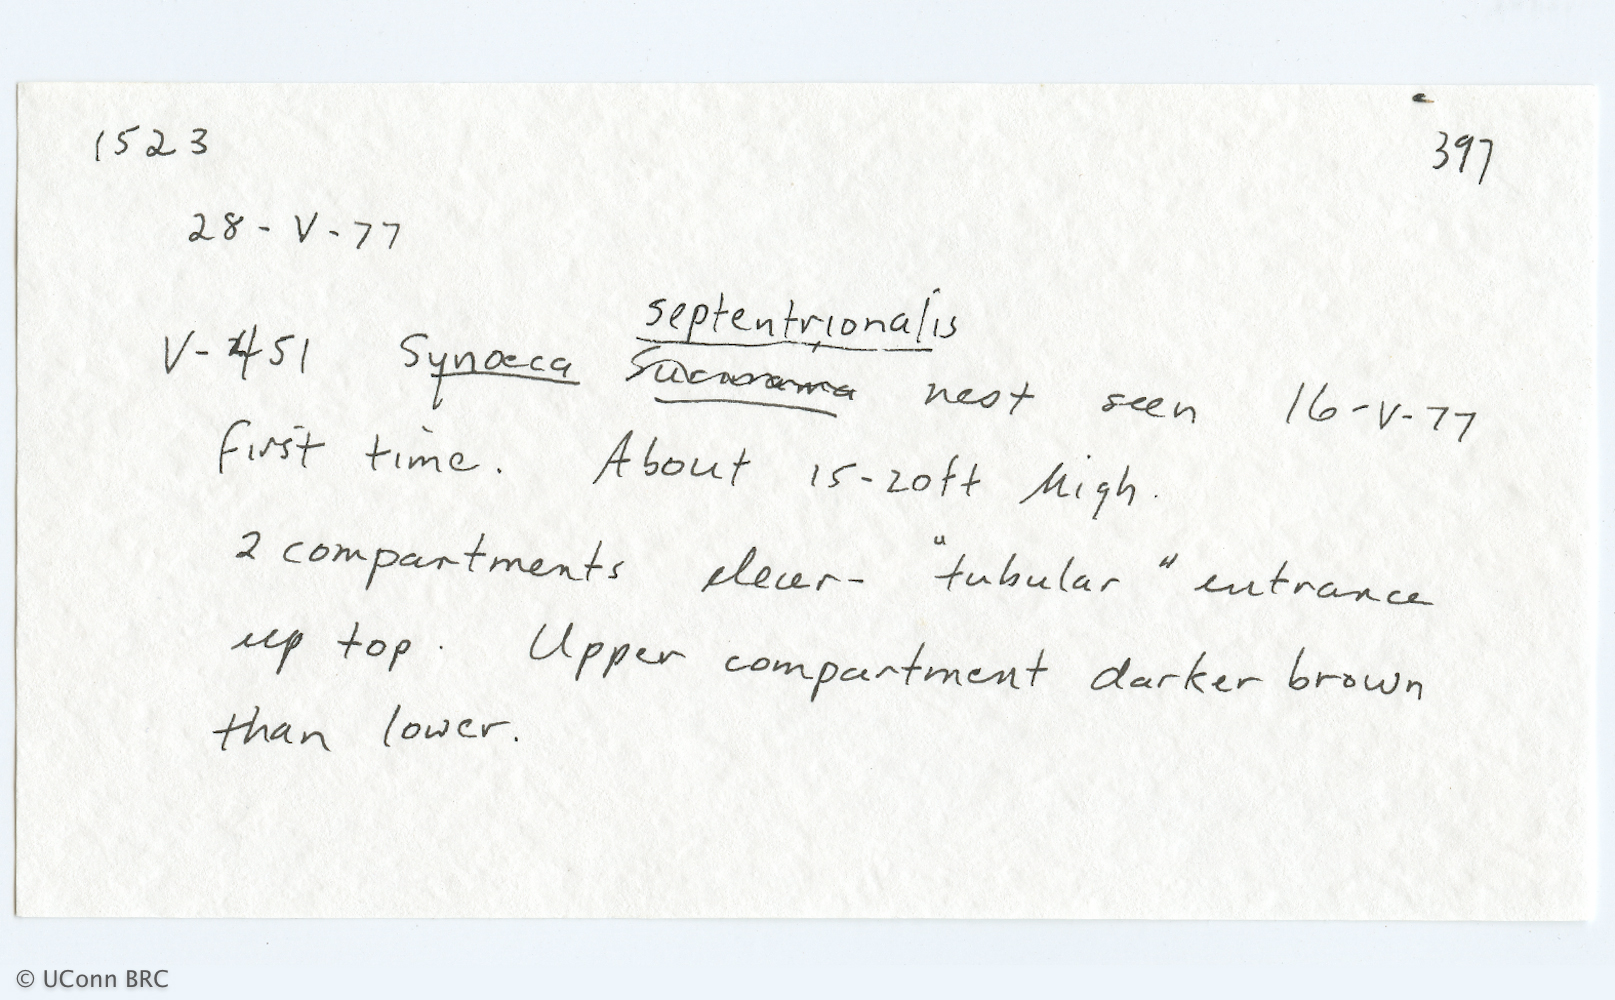 1523 397
28-V-77
septentrionalis
V-451 Synoeca nest seen 16-V-77
first time. About 15-20ft high.
2 compartments clear- "tubular" entrance
up top. Upper compartment darker brown
than lower.
© UConn BRC